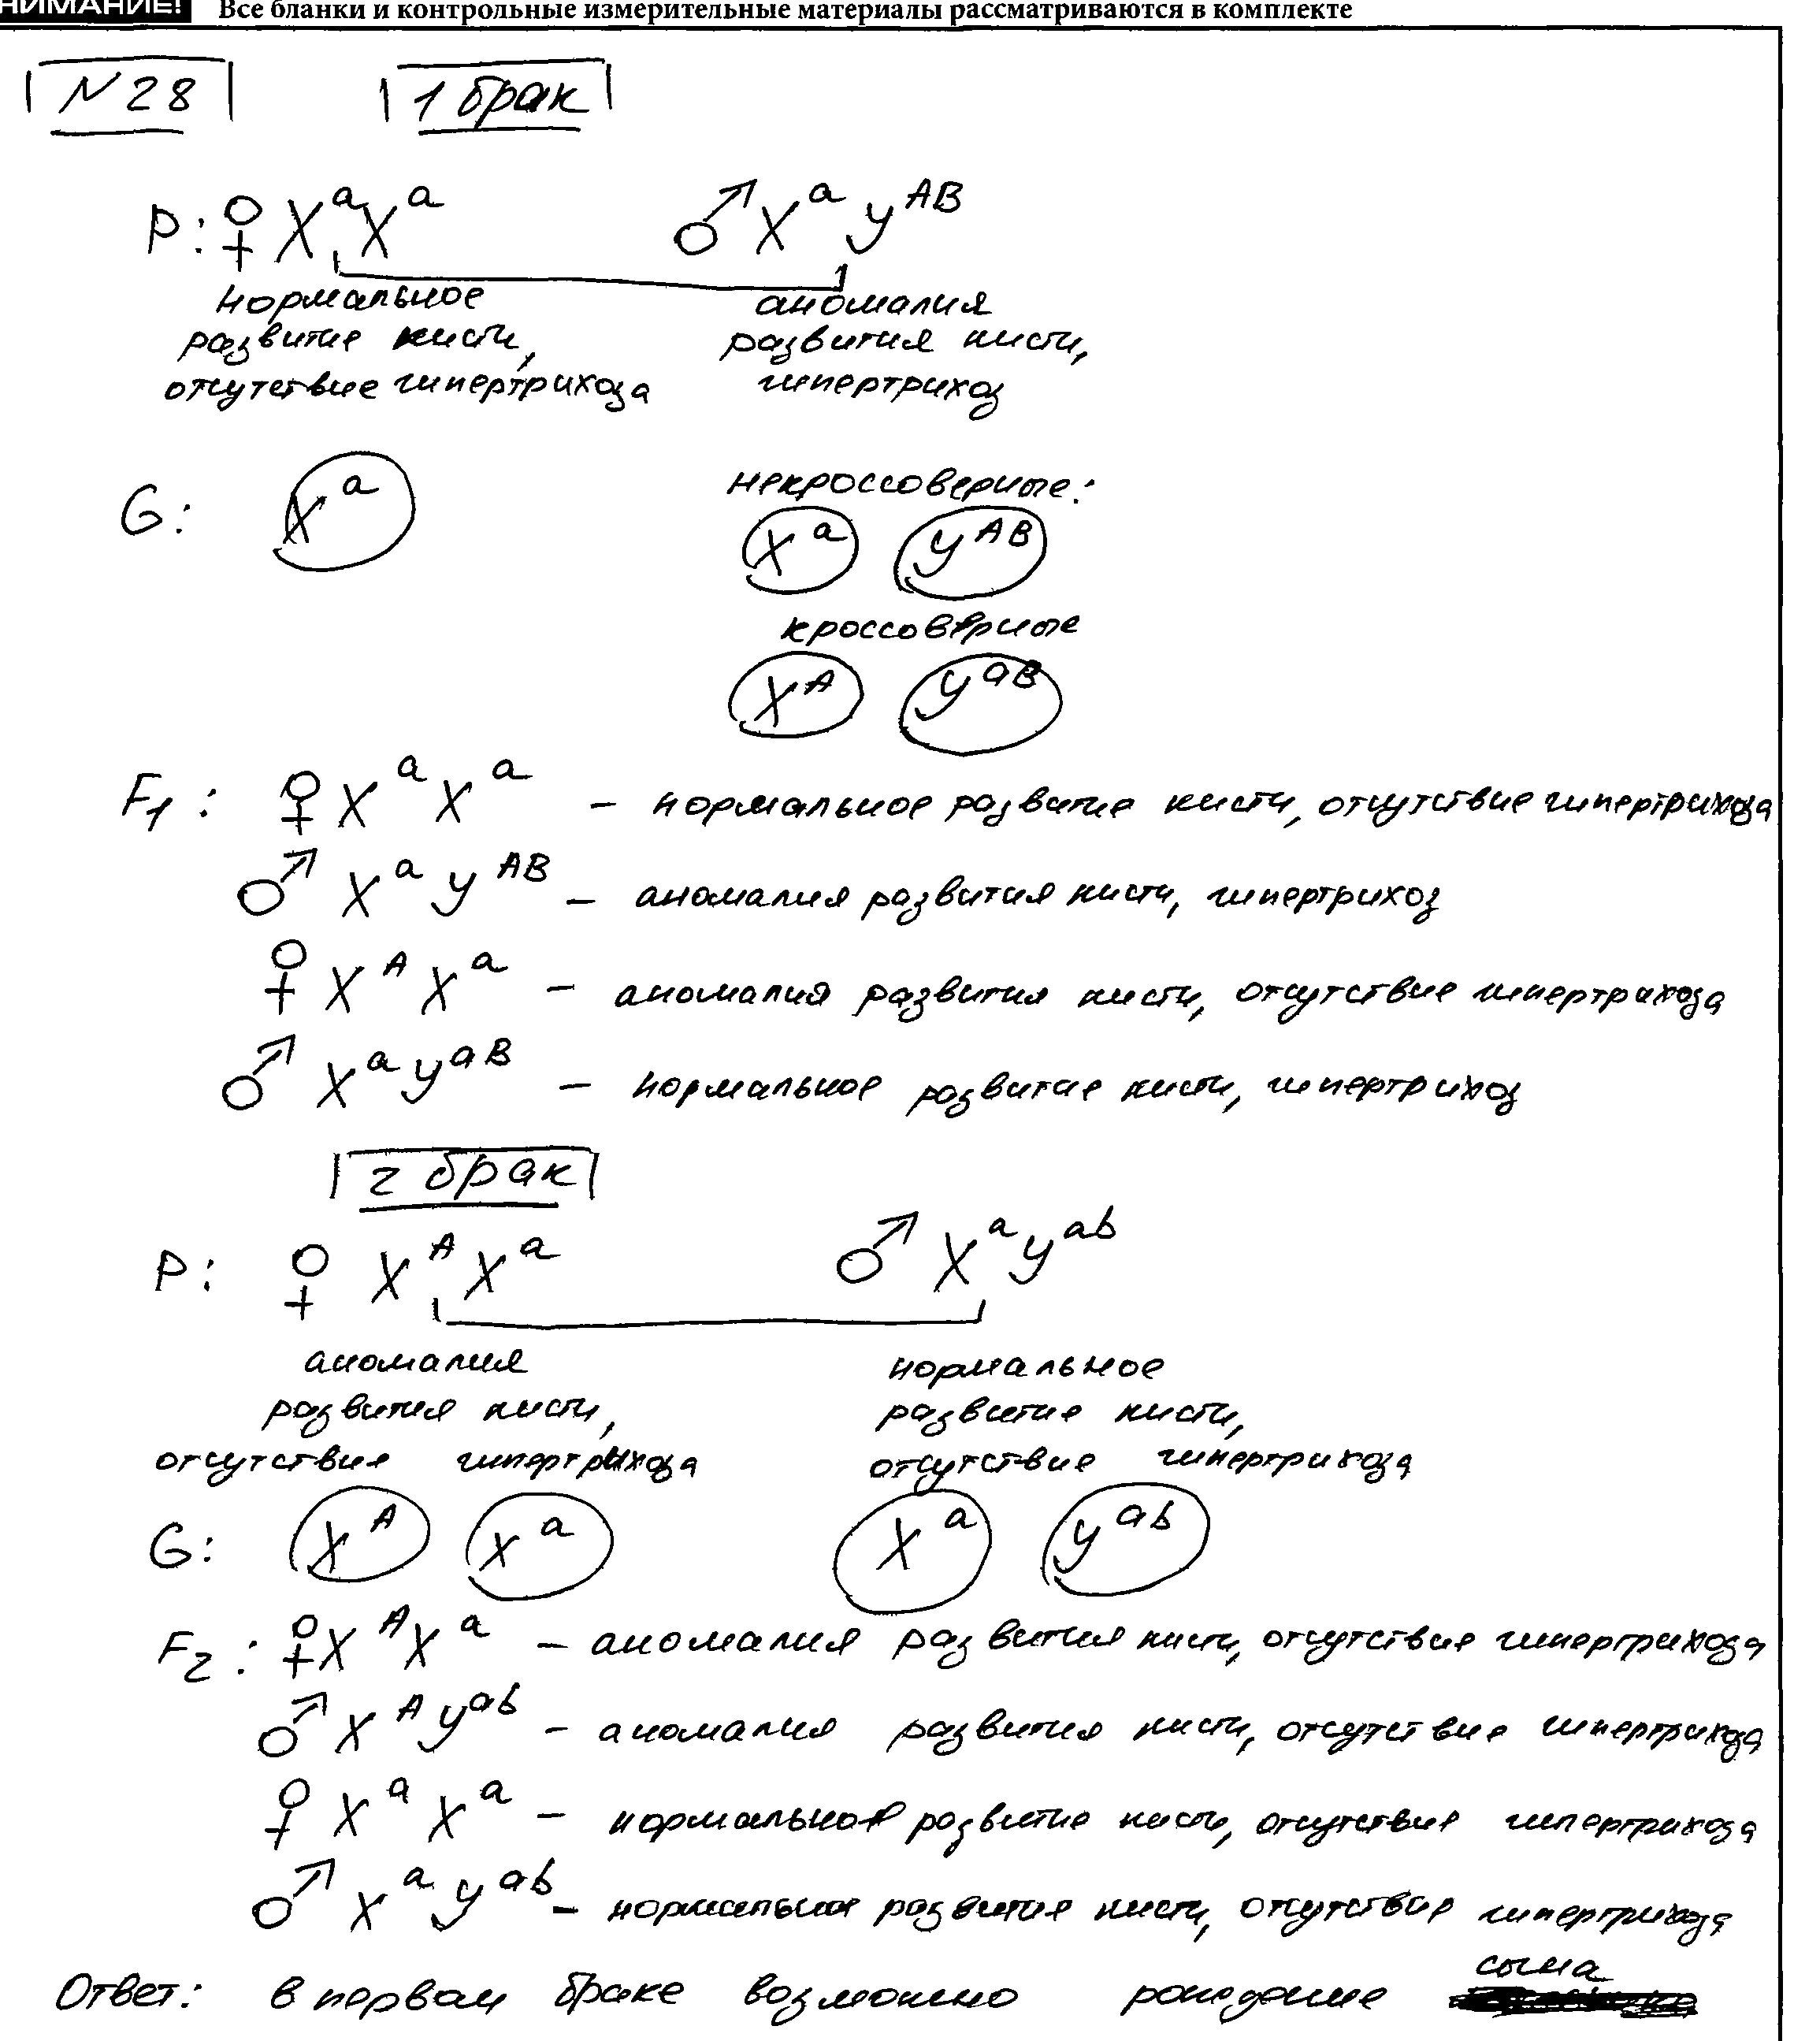 НИМАНИЕ! Все бланки и контрольные измерительные материалы рассматриваются в комплекте
N28 1 брак
P: ♀ XᵃXᵃ ♂ Xᵃ Yᴬᴮ
нормальное аномалия
развитие кисти, развития кисти,
отсутствие гипертрихоза гипертрихоз
некроссоверные:
G: Xᵃ Xᵃ Yᴬᴮ
кроссоверные
Xᴬ YᵃB
F₁: ♀ Xᵃ Xᵃ – нормальное развитие кисти, отсутствие гипертрихоза
♂ Xᵃ Yᴬᴮ – аномалия развития кисти, гипертрихоз
♀ Xᴬ Xᵃ – аномалия развития кисти, отсутствие гипертрихоза
♂ Xᵃ YᵃB – нормальное развитие кисти, гипертрихоз
2 брак
P: ♀ Xᴬ Xᵃ ♂ Xᵃ Yᵃᵇ
аномалия нормальное
развития кисти, развитие кисти,
отсутствие гипертрихоза отсутствие гипертрихоза
G: Xᴬ Xᵃ Xᵃ Yᵃᵇ
F₂: ♀ Xᴬ Xᵃ – аномалия развития кисти, отсутствие гипертрихоза
♂ Xᴬ Yᵃᵇ – аномалия развития кисти, отсутствие гипертрихоза
♀ Xᵃ Xᵃ – нормальное развитие кисти, отсутствие гипертрихоза
♂ Xᵃ Yᵃᵇ – нормальное развитие кисти, отсутствие гипертрихоза
Ответ: в первом браке возможно рождение сына